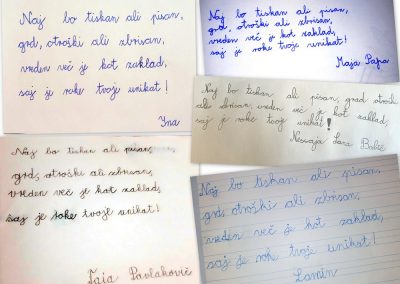 Naj bo tiskan ali pisan,
grd, otroški ali zbrisan,
vreden več je kot zaklad,
saj je roke tvoje unikat!
Ina
Naj bo tiskan ali pisan,
grd, otroški ali zbrisan,
vreden več je kot zaklad,
saj je roke tvoje unikat!
Maja Papa
Naj bo tiskan ali pisan, grd otroški
ali zbrisan, vreden več je kot zaklad,
saj je roke tvoje unikat!
Lara
Naj bo tiskan ali pisan,
grd, otroški ali zbrisan,
vreden več je kot zaklad,
saj je roke tvoje unikat!
Pavlaković
Naj bo tiskan ali pisan,
grd, otroški ali zbrisan,
vreden več je kot zaklad,
saj je roke tvoje unikat!